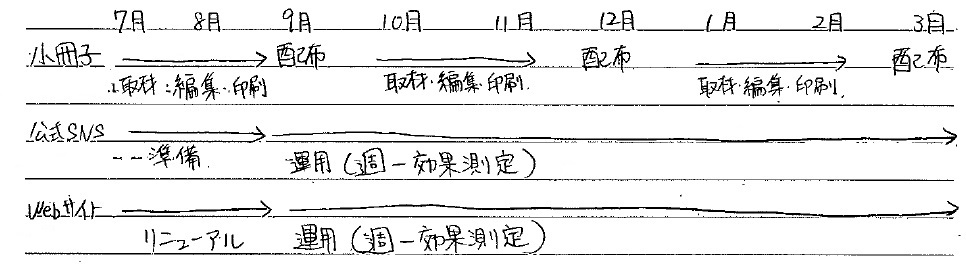 7月 8月 9月 10月 11月 12月 1月 2月 3月
小冊子 配布 配布 配布
取材・編集・印刷 取材・編集・印刷. 取材・編集・印刷.
公式SNS
準備. 運用(週一効果測定)
Webサイト
リニューアル 運用(週一効果測定)